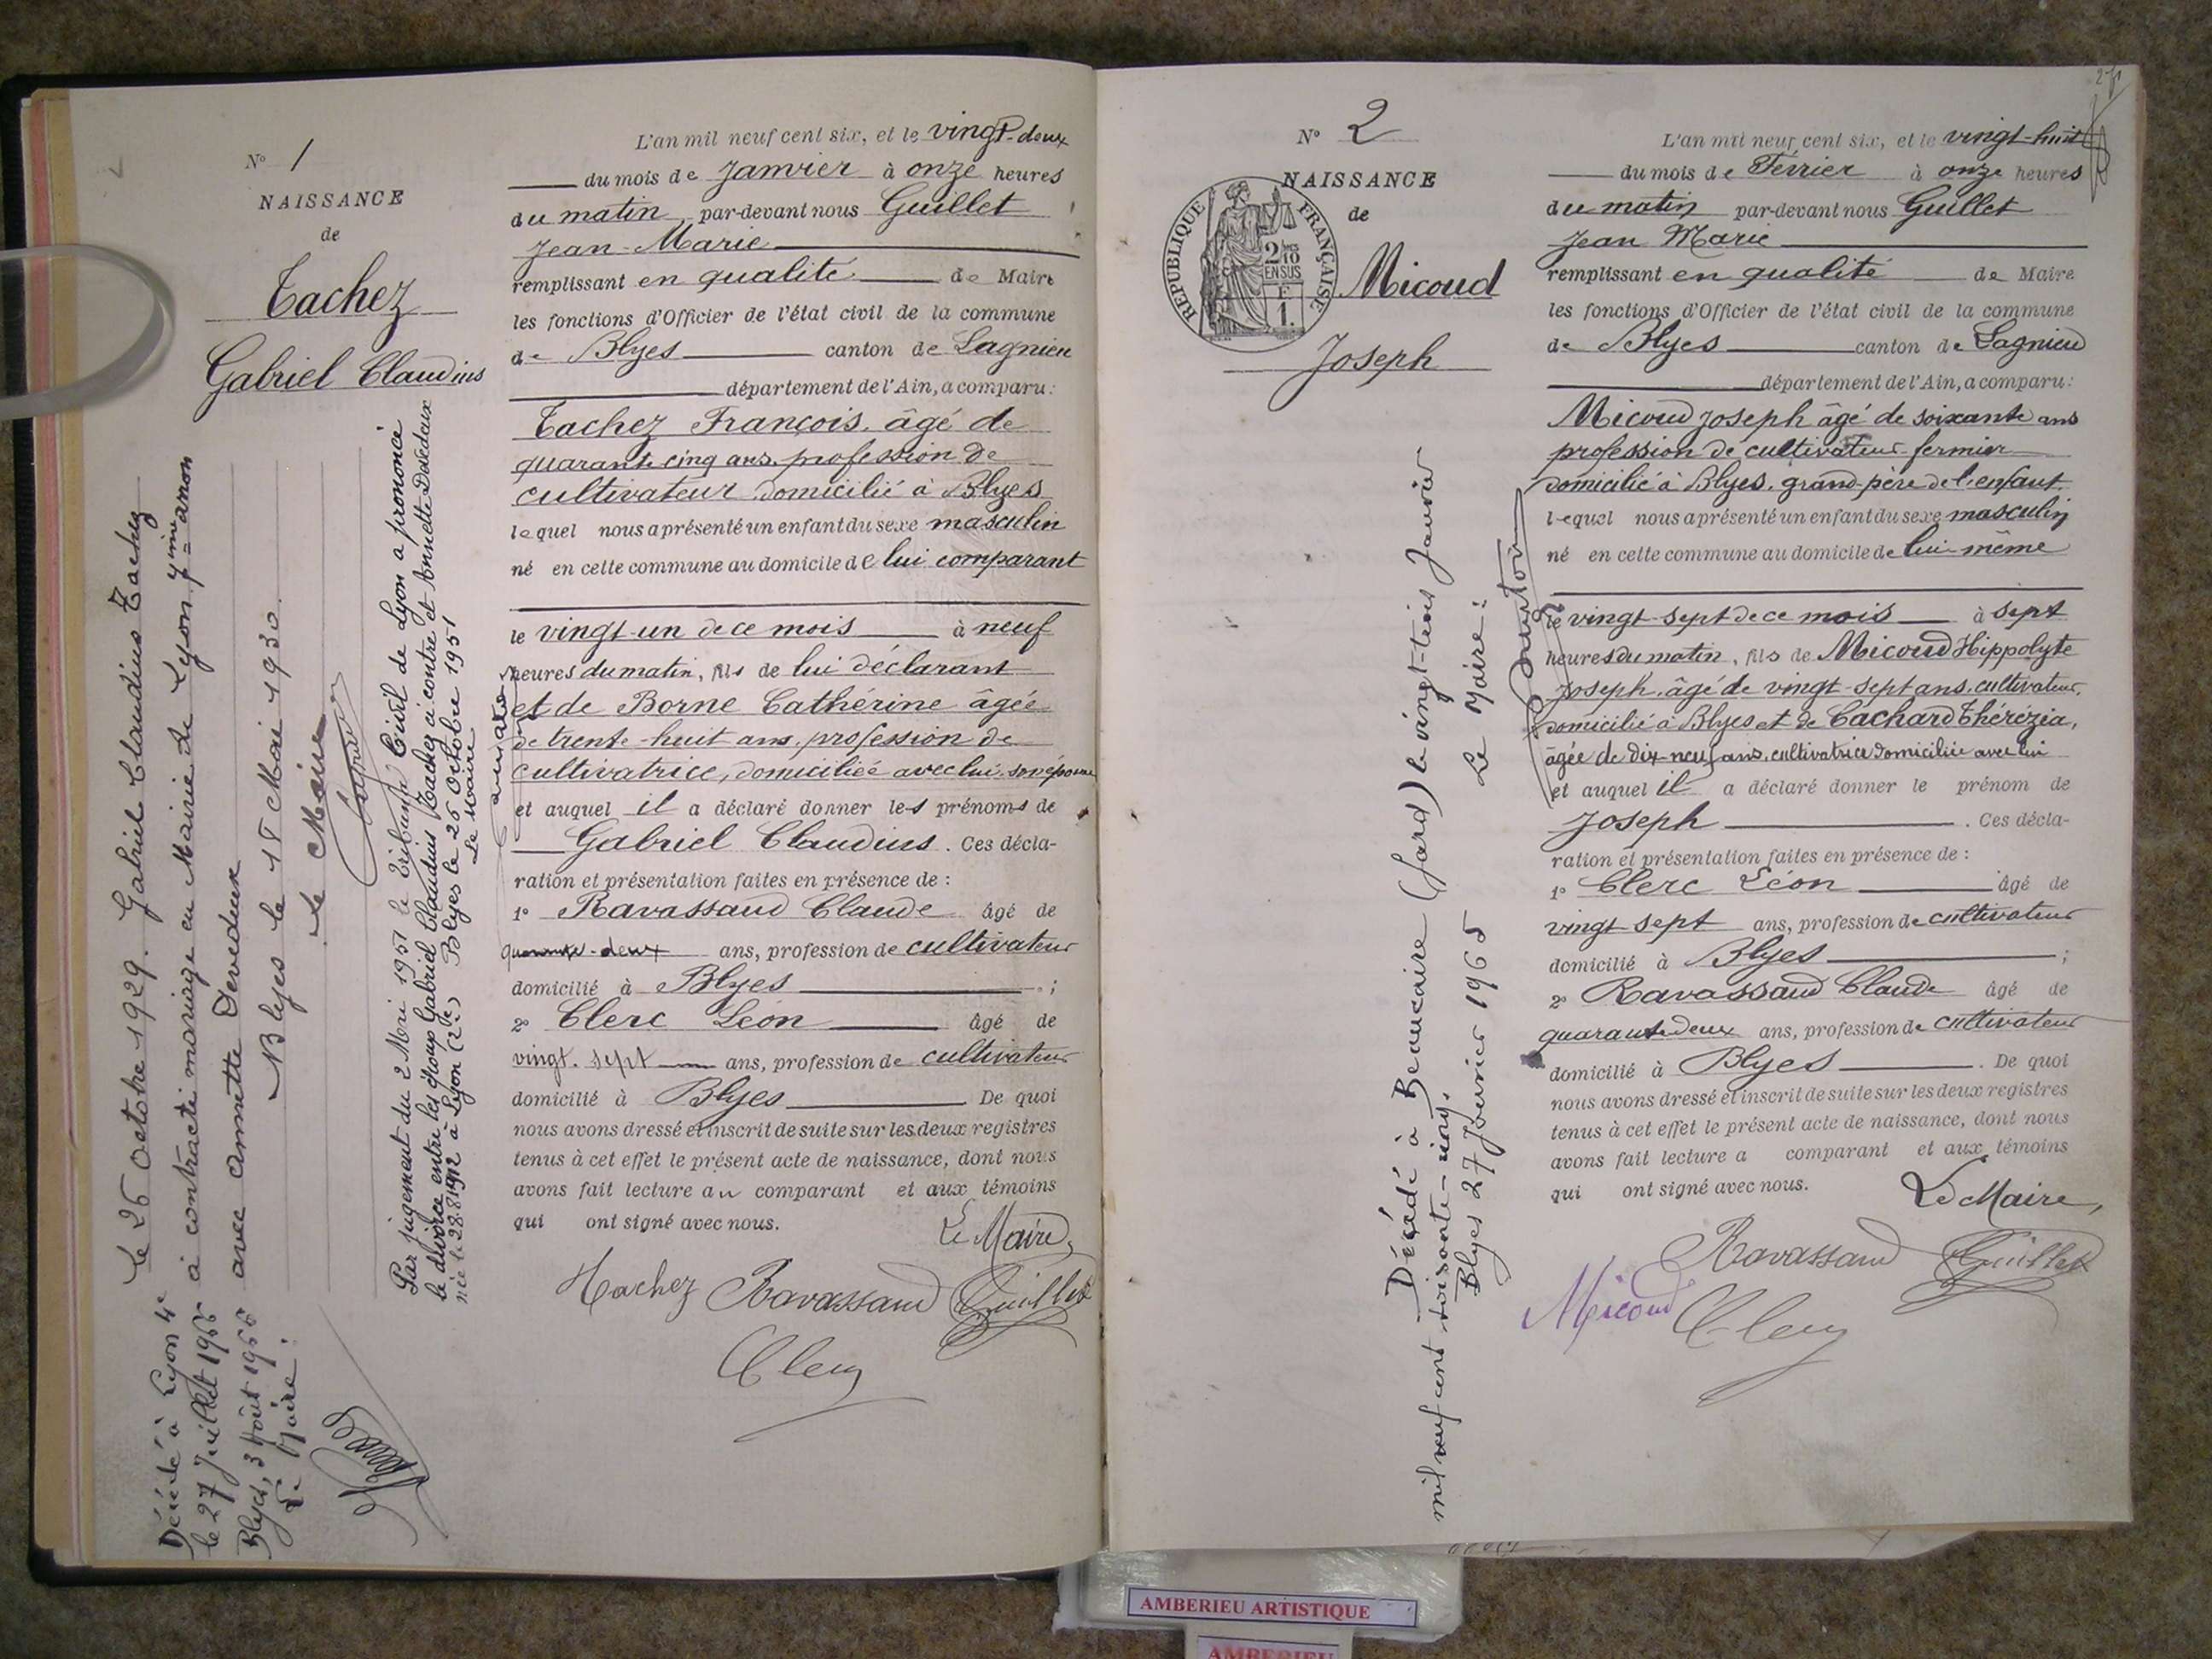 N° 1
NAISSANCE
de
Tachez
Gabriel Claudius
L'an mil neuf cent six, et le vingt-deux
du mois de Janvier à onze heures
du matin, par-devant nous Guillet
Jean-Marie
remplissant en qualité de Maire
les fonctions d'Officier de l'état civil de la commune
de Blyes canton de Lagnieu
département de l'Ain, a comparu:
Tachez François, âgé de
quarante cinq ans, profession de
cultivateur domicilié à Blyes
lequel nous a présenté un enfant du sexe masculin
né en cette commune au domicile de lui comparant
le vingt-un de ce mois à neuf
heures du matin, fils de lui déclarant
et de Borne Cathérine âgée
de trente-huit ans, profession de
cultivatrice, domiciliée avec lui, son épouse
et auquel il a déclaré donner les prénoms de
Gabriel Claudius. Ces décla-
ration et présentation faites en présence de :
1° Ravassaud Claude âgé de
quarante-deux ans, profession de cultivateur
domicilié à Blyes ;
2° Clerc Léon âgé de
vingt-sept ans, profession de cultivateur
domicilié à Blyes De quoi
nous avons dressé et inscrit de suite sur les deux registres
tenus à cet effet le présent acte de naissance, dont nous
avons fait lecture au comparant et aux témoins
qui ont signé avec nous.
Le Maire,
Tachez Ravassaud Guillet
Clerc
Le 26 Octobre 1929. Gabriel Claudius Tachez
a contracté mariage en Mairie de Lyon 7ème arron
avec Annette Devedeux
Blyes le 18 Mai 1930.
Le Maire
Par jugement du 2 Mai 1951 le Tribunal Civil de Lyon a prononcé
le divorce entre les époux Gabriel Claudius Tachez ci contre et Annette Devedeux
née le 28.8.1912 à Lyon (2e) Blyes le 26 Octobre 1951
Le Maire
Décédé à Lyon 4e
le 27 Juillet 1966
Blyes, 3 Août 1966
Le Maire :
N° 2
NAISSANCE
de
REPUBLIQUE FRANÇAISE
2/10 EN SUS
1.
Micoud
Joseph
L'an mil neuf cent six, et le vingt-huit
du mois de Février à onze heures
du matin par-devant nous Guillet
Jean Marie
remplissant en qualité de Maire
les fonctions d'Officier de l'état civil de la commune
de Blyes canton de Lagnieu
département de l'Ain, a comparu:
Micoud Joseph âgé de soixante ans
profession de cultivateur fermier
domicilié à Blyes, grand-père de l'enfant.
lequel nous a présenté un enfant du sexe masculin
né en cette commune au domicile de lui-même
le vingt-sept de ce mois à sept
heures du matin, fils de Micoud Hippolyte
Joseph, âgé de vingt-sept ans, cultivateur,
domicilié à Blyes et de Cachard Thérézia,
âgée de dix-neuf ans, cultivatrice domiciliée avec lui
et auquel il a déclaré donner le prénom de
Joseph. Ces décla-
ration et présentation faites en présence de :
1° Clerc Léon âgé de
vingt-sept ans, profession de cultivateur
domicilié à Blyes ;
2° Ravassaud Claude âgé de
quarante-deux ans, profession de cultivateur
domicilié à Blyes. De quoi
nous avons dressé et inscrit de suite sur les deux registres
tenus à cet effet le présent acte de naissance, dont nous
avons fait lecture a comparant et aux témoins
qui ont signé avec nous.
Le Maire,
Ravassaud Guillet
Micoud Clerc
Décédé à Beaucaire (Gard) le vingt-trois Janvier
mil neuf cent soixante-cinq.
Blyes 27 Janvier 1965 Le Maire :
AMBERIEU ARTISTIQUE
AMBERIEU